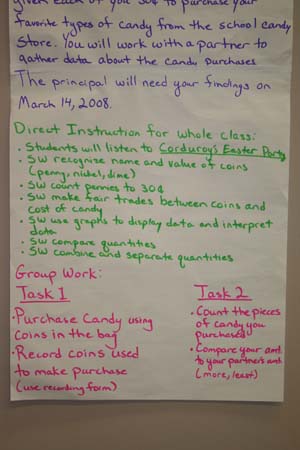 given each of you 30¢ to purchase your
favorite types of candy from the school candy
store. You will work with a partner to
gather data about the candy purchases
The principal will need your findings on
March 14, 2008.
Direct Instruction for whole class:
• Students will listen to Corduroy's Easter Party
• SW recognize name and value of coins
(penny, nickel, dime)
• SW count pennies to 30¢
• SW make fair trades between coins and
cost of candy
• SW use graphs to display data and interpret
data
• SW compare quantities
• SW combine and separate quantities
Group Work:
Task 1
• Purchase Candy using
coins in the bag
• Record coins used
to make purchase
(use recording form)
Task 2
• Count the pieces
of candy you
purchased
• Compare your amt.
to your partner's amt.
(more, least)